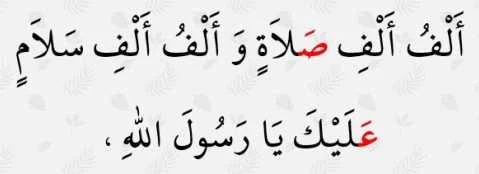 أَلْفُ أَلْفِ صَلاَةٍ وَ أَلْفُ أَلْفِ سَلاَمٍ
عَلَيْكَ يَا رَسُولَ اللهِ ،